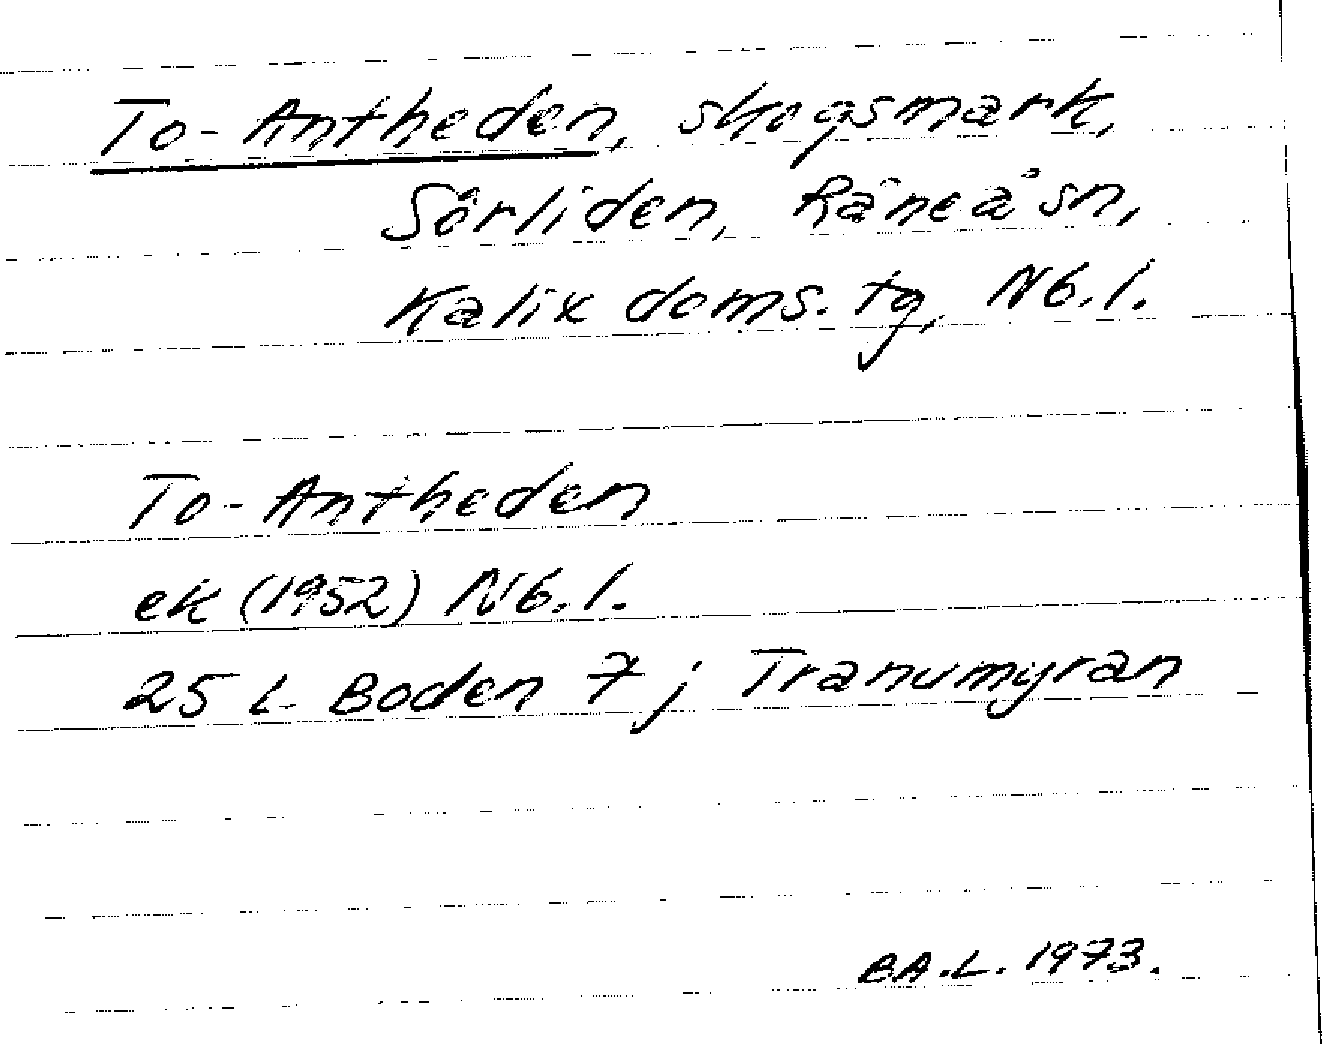 To-Antheden, skogsmark,
Sörliden, Råneå sn,
Kalix doms. tg, Nb. l.
To-Antheden
ek (1952) Nb. l.
25 L Boden 7 j Tranumyran
B.A.L. 1973.